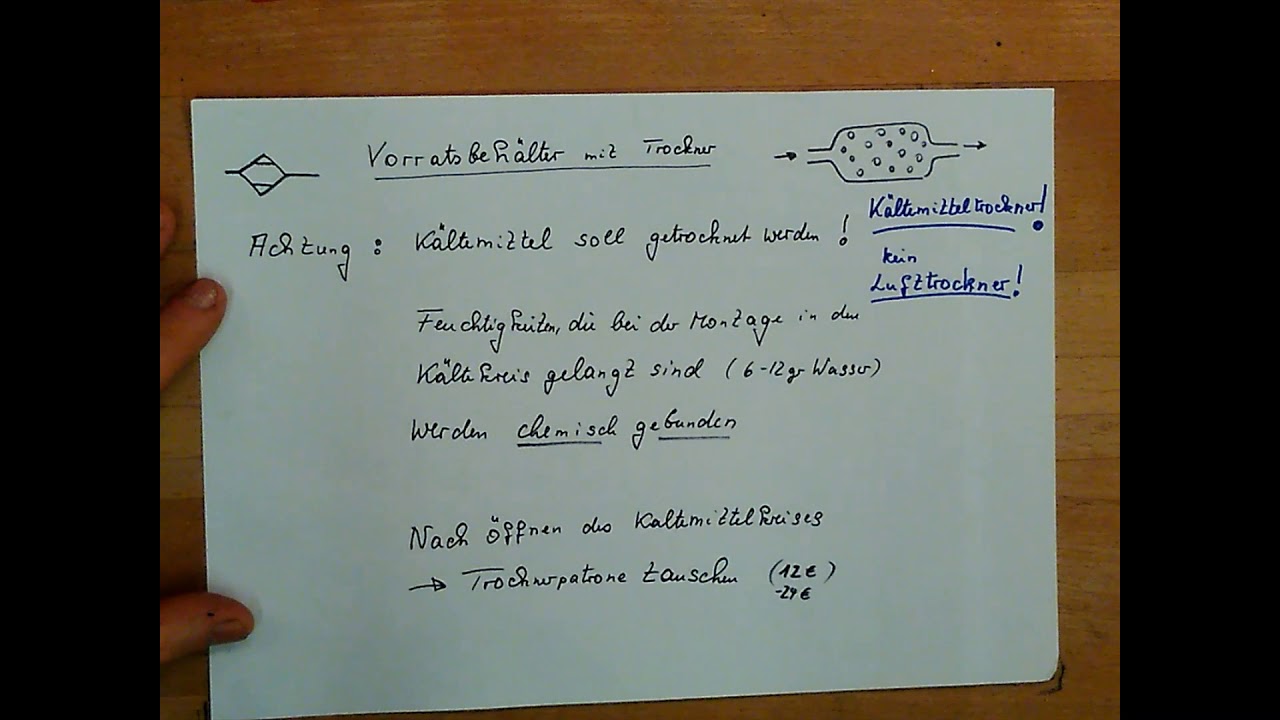 Vorratsbehälter mit Trockner
Kältemitteltrockner!
Achtung: Kältemittel soll getrocknet werden!
kein
Lufttrockner!
Feuchtigkeiten, die bei der Montage in den
Kältekreis gelangt sind (6-12gr Wasser)
werden chemisch gebunden
Nach öffnen des Kältemittelkreises
→ Trocknerpatrone tauschen (12€)
-24€